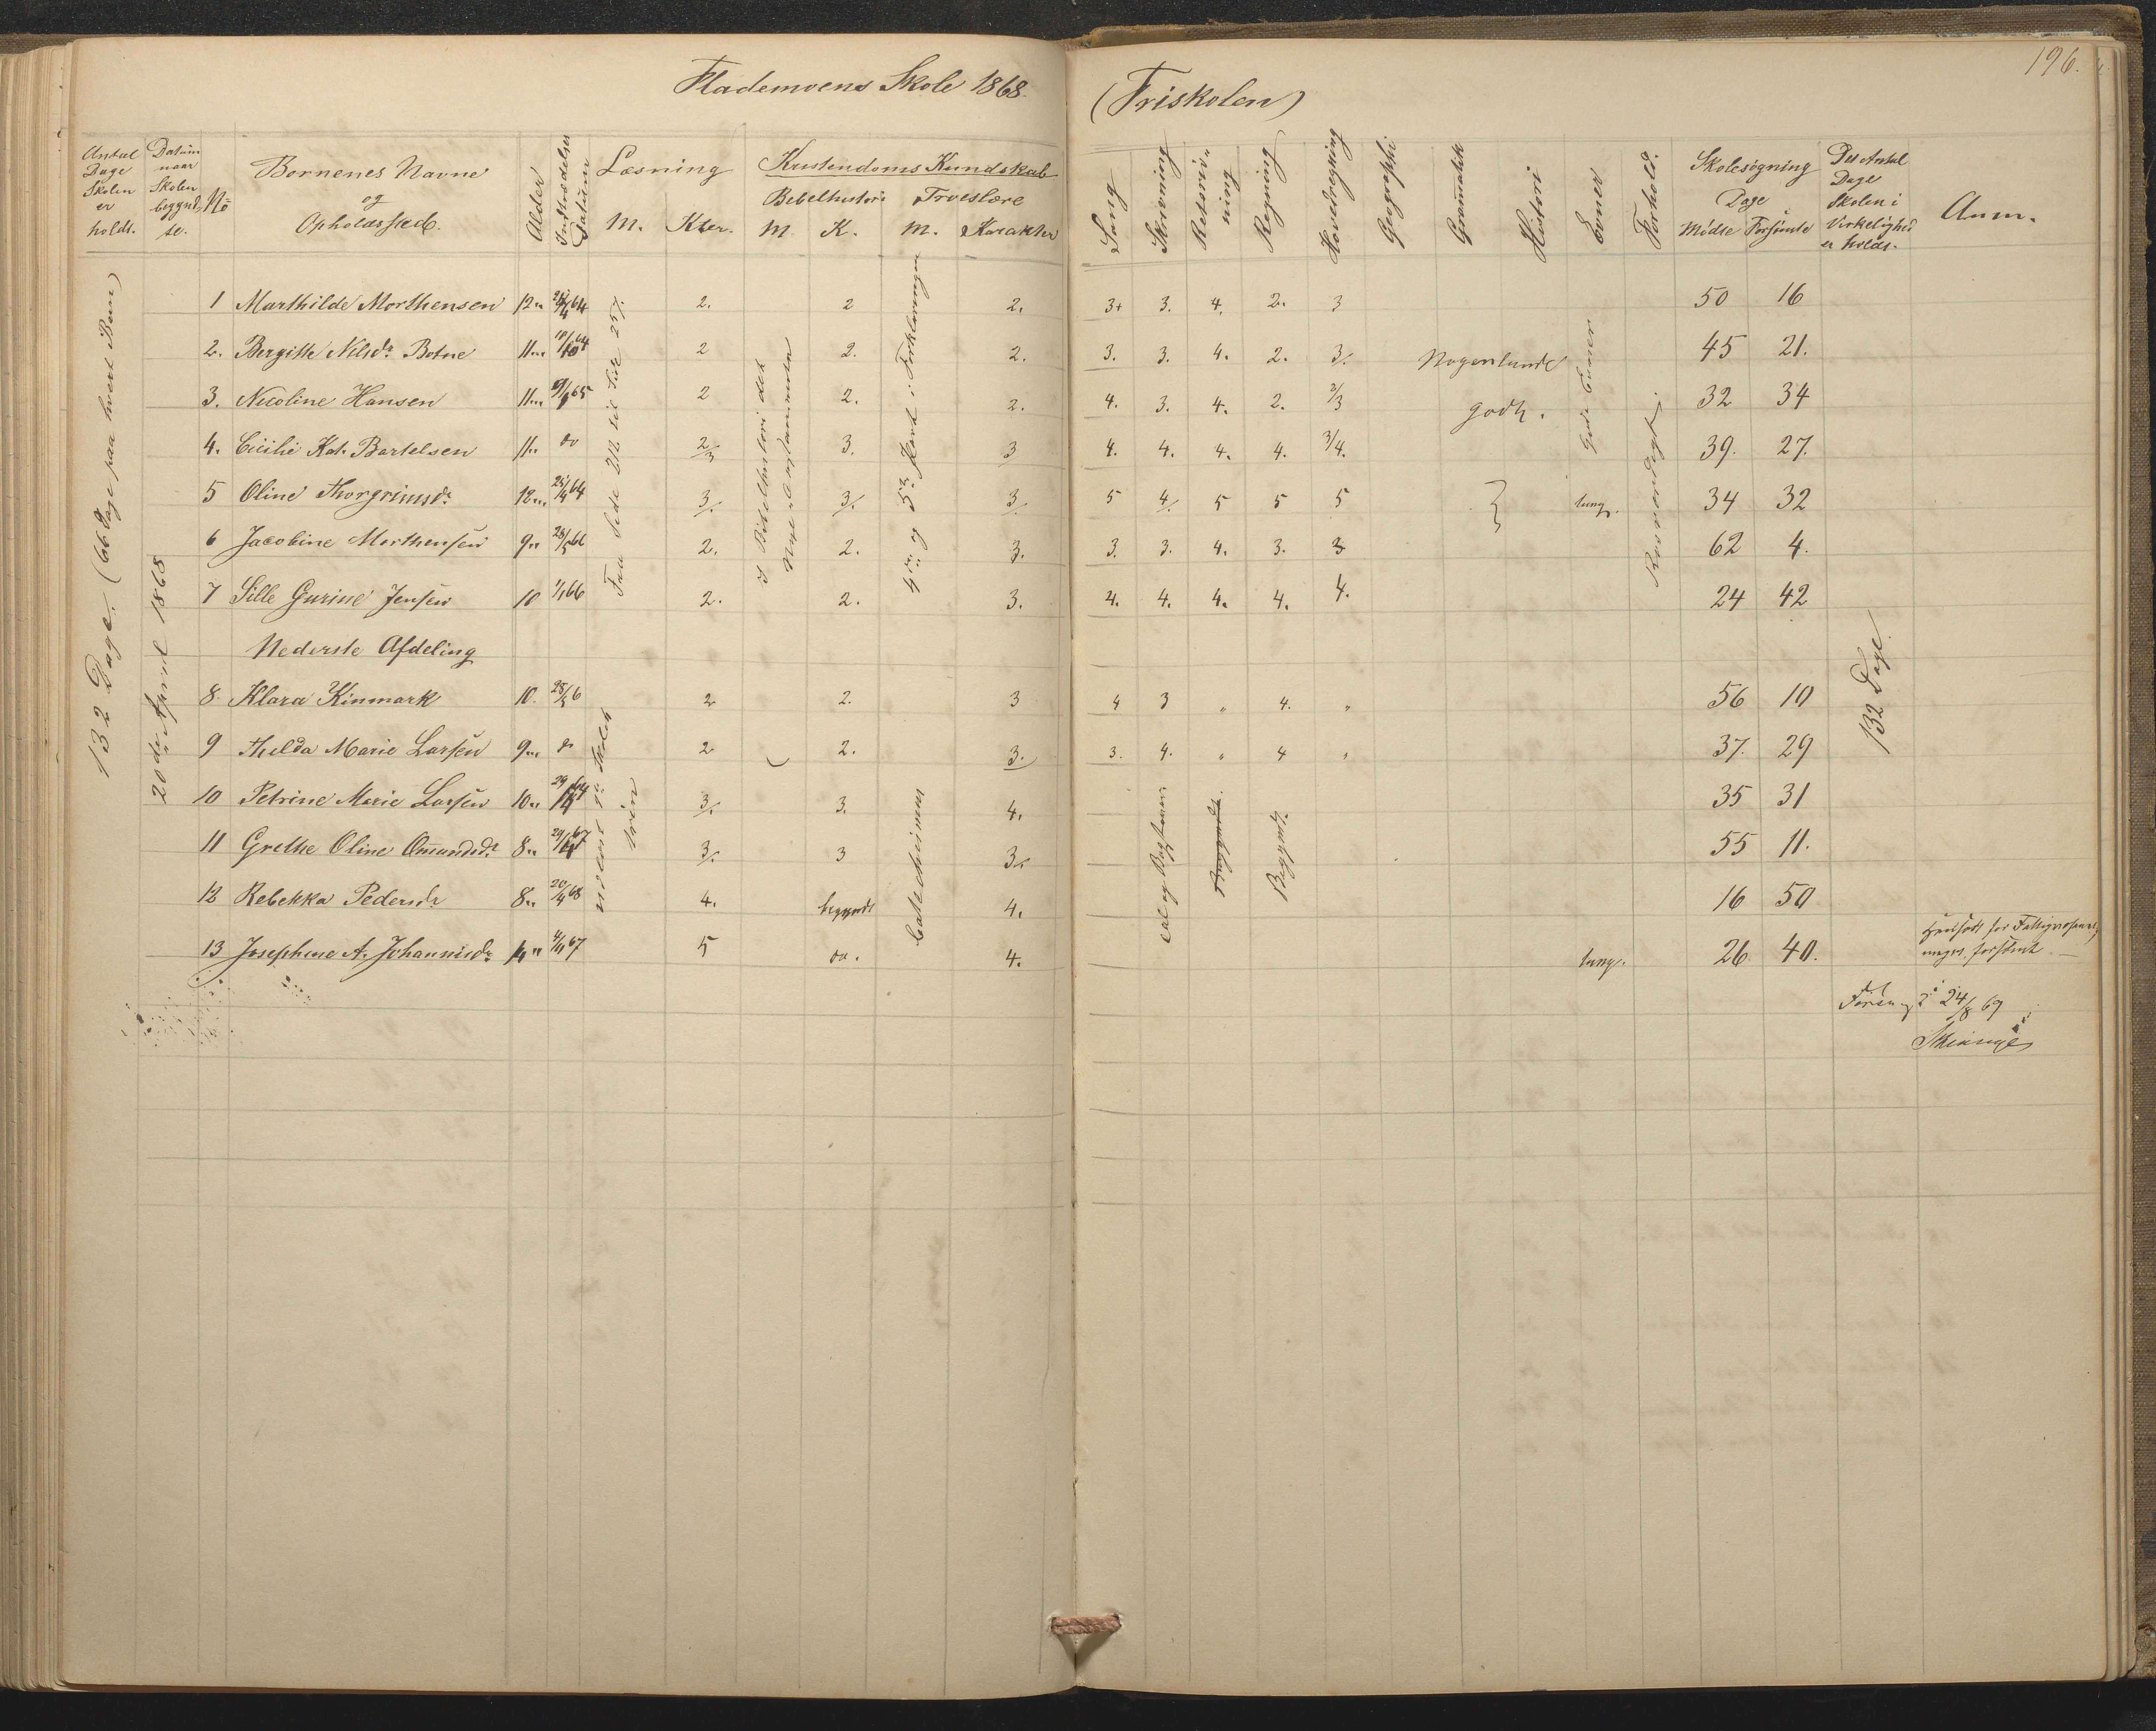 196.
Flademoens Skole 1868. (Friskolen)
Antal Dage Skolen er holdt.
Datum naar Skolen begynd- te.
No
Børnenes Navne og Opholdssted.
Alder
Indtrædelses Datum
Læsning
M. Kter.
Kristendoms Kundskab
Bibelhistorie Troeslære
M. K. M. Karakter
Sang
Skrivning
Retskriv- ning
Regning
Hovedregning
Geographi
Grammatik
Historie
Evner
Forhold.
Skolesøgning
Dage
Mødte Forsømte
Det Antal Dage Skolen i Virkelighed er holdt.
Anm.
132 Dage. (66 Dage paa hvert Barn)
20de April 1868
Fra Side 212 til Side 257.
I Bibelhistori det Nye Testamente
4de og 5te Part i Forklaringen
1 Marthilde Morthensen 12" 64 2. 2 2. 3+ 3. 4. 2. 3 50 16
2. Bergitte Nilsdr. Botne 11" 64 2 2. 2. 3. 3. 4. 2. 3/. Nogenlunde 45 21.
3. Nicoline Hansen 11" 65 2 2. 2. 4. 3. 4. 2. 2/3 godt. 32 34
gode Evner
4. Cicilie Kat. Bartelsen 11" do 2/3 3. 3 4. 4. 4. 4. 3/4. 39. 27.
Rosværdigt.
5 Oline Thorgrimsdr. 12" 25/4 64 3/. 3/. 3/. 5 4/. 5 5 5 tung. 34 32
6 Jacobine Morthensen 9" 28/5 66 2. 2. 3. 3. 3. 4. 3. 3 62 4.
7 Sille Gurine Jensen 10 1/1 66 2. 2. 3. 4. 4. 4. 4. 4. 24 42
Nederste Afdeling
132 Dage.
8. Klara Kinmark 10. 2 2. 3 4 3 " 4. " 56 10
9 Thelda Marie Larsen 9" do 2 2. 3. 3. 4. " 4 " 37. 29
10 Petrine Marie Larsen 10" 3/. 3. 4. 35 31
11 Grethe Oline Omundsdr. 8" 67 3/. 3 3/. 55 11.
Catechismus
Begyndt.
Begyndt.
12 Rebekka Pedersdr. 8" 20/4 68 4. begyndt 4. 16 50
13 Josephine A. Johannisdr. 4/11 67 5 do. 4. tung. 26 40.
24/8 69